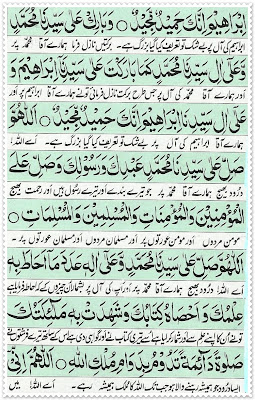 اِبْرَاهِيْمَ اِنَّكَ حَمِيْدٌ مَّجِيْدٌ ○ وَبَارِكْ عَلٰى سَيِّدِنَا مُحَمَّدٍ
ابراہیم کی آل پر بے شک تو تعریف کیا گیا بزرگ ہے۔ برکتیں نازل فرما ہمارے آقا محمد پر
وَّعَلٰى اٰلِ سَيِّدِنَا مُحَمَّدٍ كَمَا بَارَكْتَ عَلٰى سَيِّدِنَا اِبْرَاهِيْمَ وَ
اور ہمارے آقا محمد کی آل پر جس طرح برکت نازل فرمائی تو نے ہمارے آقا ابراہیم پر اور
عَلٰى اٰلِ سَيِّدِنَا اِبْرَاهِيْمَ اِنَّكَ حَمِيْدٌ مَّجِيْدٌ ○ اَللّٰهُمَّ
ہمارے آقا ابراہیم کی آل پر بے شک تو تعریف کیا گیا بزرگ ہے۔ اے اللہ!
صَلِّ عَلٰى سَيِّدِنَا مُحَمَّدٍ عَبْدِكَ وَرَسُوْلِكَ وَصَلِّ عَلَى
درود بھیج ہمارے آقا محمد پر جو تیرے بندے اور تیرے رسول ہیں اور رحمت بھیج
الْمُؤْمِنِيْنَ وَالْمُؤْمِنَاتِ وَالْمُسْلِمِيْنَ وَالْمُسْلِمَاتِ ○
مومن مردوں اور مومن عورتوں پر۔ اور مسلمان مردوں اور مسلمان عورتوں پر۔
اَللّٰهُمَّ صَلِّ عَلٰى سَيِّدِنَا مُحَمَّدٍ وَّعَلٰى اٰلِهٖ عَدَدَ مَا اَحَاطَ بِهٖ
اے اللہ! درود بھیج ہمارے آقا محمد پر اور آپ کی آل پر
عِلْمُكَ وَاَحْصَاهُ كِتَابُكَ وَشَهِدَتْ بِهٖ مَلٰٓئِكَتُكَ
صَلٰوةً دَآئِمَةً تَدُوْمُ بِدَوَامِ مُلْكِ اللّٰهِ ○ اَللّٰهُمَّ اِنِّيْ
ایسا درود جو ہمیشہ رہنے والا ہو جب تک اللہ کا ملک ہمیشہ رہے۔ اے اللہ! میں